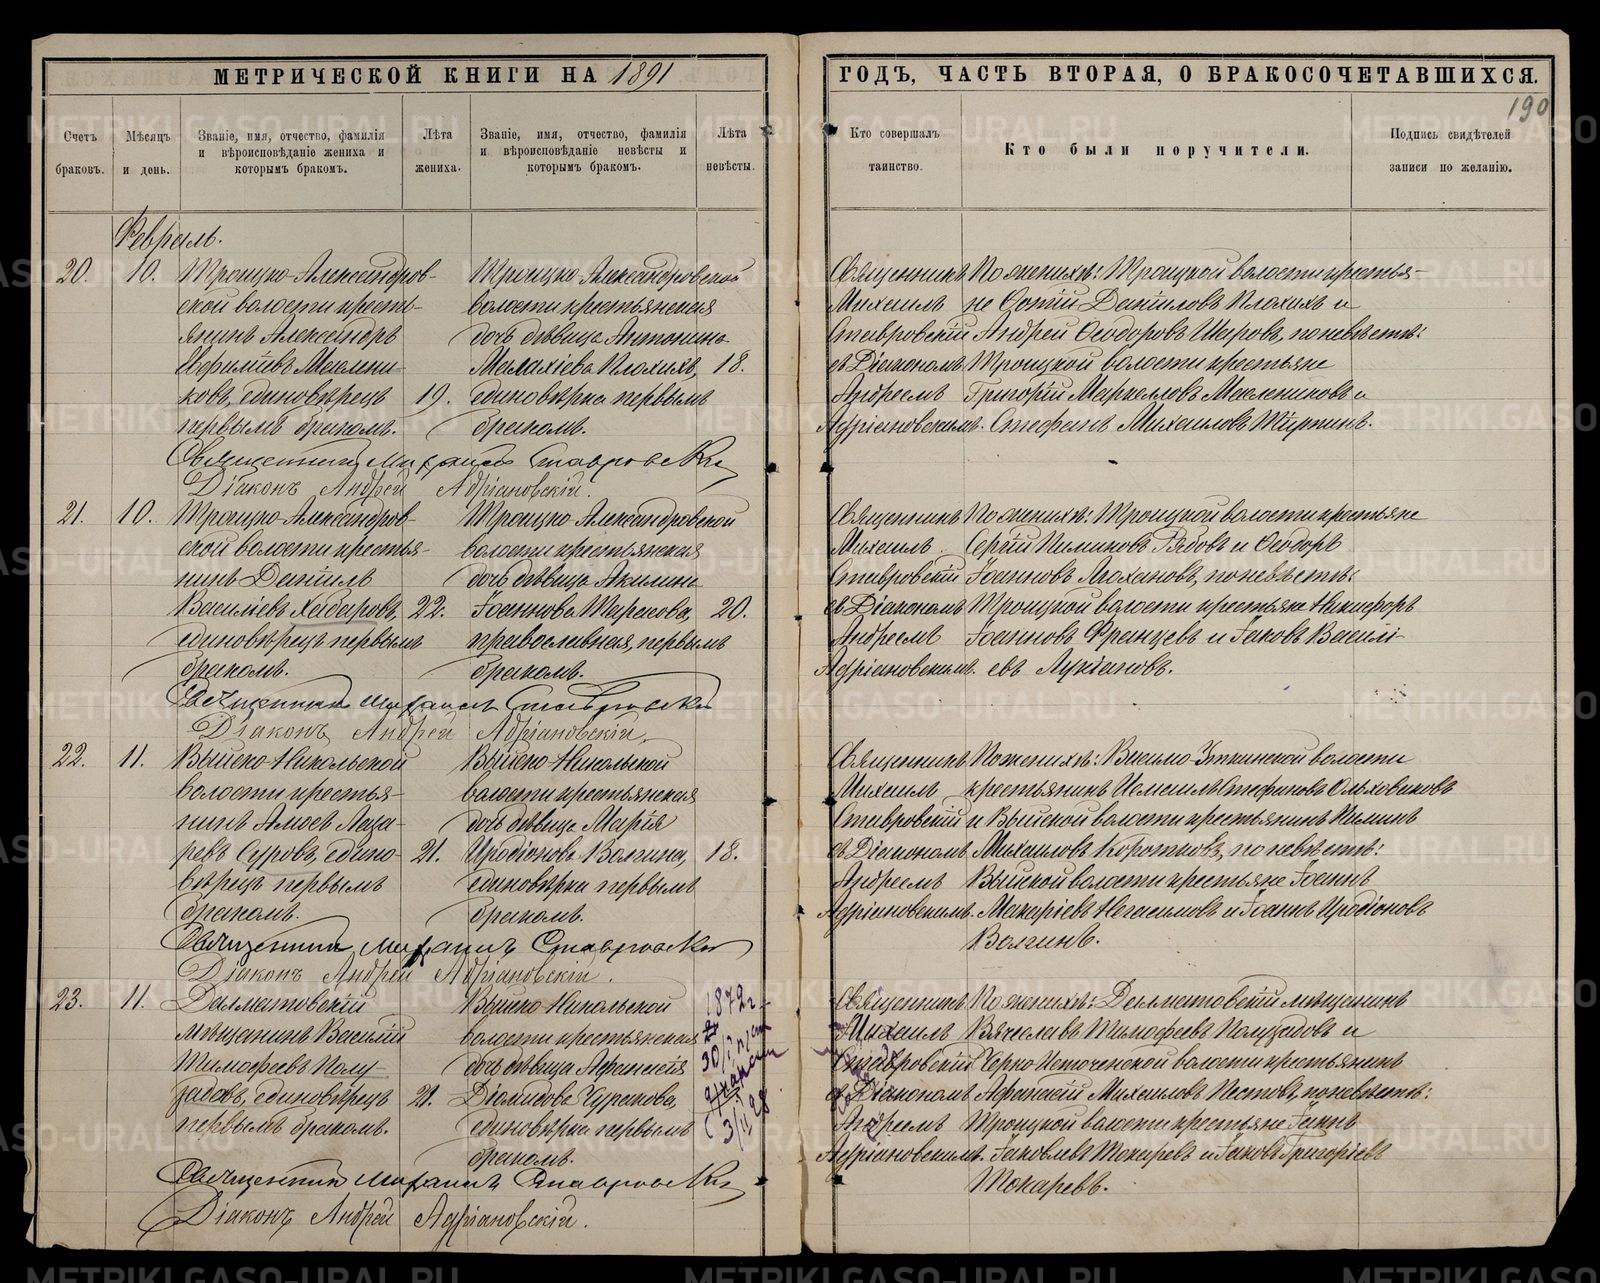 МЕТРИЧЕСКОЙ КНИГИ НА 1891
ГОДЪ, ЧАСТЬ ВТОРАЯ, О БРАКОСОЧЕТАВШИХСЯ.
190
Счетъ браковъ.
Мѣсяцъ и день.
Званіе, имя, отчество, фамилія
и вѣроисповѣданіе жениха и
которымъ бракомъ.
Лѣта жениха.
Званіе, имя, отчество, фамилія
и вѣроисповѣданіе невѣсты и
которымъ бракомъ.
Лѣта невѣсты.
Кто совершалъ
таинство.
Кто были поручители.
Подпись свидѣтелей
записи по желанію.
Февраль.
20. 10.
Троицко-Александров-
ской волости кресть-
янинъ Александръ
Мелени-
ковъ, единовѣрецъ 19.
первымъ бракомъ.
Троицко-Александровской
волости крестьянская
дочь дѣвица Антонина
Малахіева Плохихъ, 18.
единовѣрка первымъ
бракомъ.
Священникъ
Михаилъ
Ставровскій
съ Діакономъ
Андреемъ
Адріановскимъ.
По женихѣ: Троицкой волости крестья-
не Даніиловъ Плохихъ и
Андрей Ѳеодоровъ Шаровъ, по невѣстѣ:
Троицкой волости крестьяне
Григорій Маркелловъ Мелениковъ и
Стефанъ Михаиловъ
Священникъ Михаилъ Ставровскій
Діаконъ Андрей Адріановскій.
21. 10.
Троицко-Александров-
ской волости крестья-
нинъ Даніилъ
Василіевъ Хабаровъ, 22.
единовѣрецъ первымъ
бракомъ.
Троицко-Александровской
волости крестьянская
дочь дѣвица Акилина
Іоаннова Тарасова, 20.
православная, первымъ
бракомъ.
Священникъ
Михаилъ
Ставровскій
съ Діакономъ
Андреемъ
Адріановскимъ.
По женихѣ: Троицкой волости крестьяне
Сергій Пиминовъ Рябовъ и Ѳеодоръ
Іоанновъ по невѣстѣ:
Троицкой волости крестьяне Никифоръ
Іоанновъ Францевъ и Іаковъ Василі-
евъ Лукіановъ.
Священникъ Михаилъ Ставровскій
Діаконъ Андрей Адріановскій.
22. 11.
Выйско-Никольской
волости крестья-
нинъ Амосъ Лаза-
ревъ Суровъ, едино- 21.
вѣрецъ первымъ
бракомъ.
Выйско-Никольской
волости крестьянская
дочь дѣвица Марія
Иродіонова Волгина, 18.
единовѣрка первымъ
бракомъ.
Священникъ
Михаилъ
Ставровскій
съ Діакономъ
Андреемъ
Адріановскимъ.
По женихѣ: Висимо-Уткинской волости
крестьянинъ Стефановъ Ольховиковъ
и Выйской волости крестьянинъ Пиминъ
Михаиловъ Коротковъ, по невѣстѣ:
Выйской волости крестьяне Іоаннъ
Макаріевъ Негасимовъ и Іоаннъ Иродіоновъ
Волгинъ.
Священникъ Михаилъ Ставровскій
Діаконъ Андрей Адріановскій.
23. 11.
Далматовскій
мѣщанинъ Василій
Тимофеевъ Полу-
задовъ, единовѣрецъ 21.
первымъ бракомъ.
Выйско-Никольской
волости крестьянская
дочь дѣвица Аѳанасія
Діомидова Чуракова,
единовѣрка первымъ
бракомъ.
1872 г.
Священникъ
Михаилъ
Ставровскій
съ Діакономъ
Андреемъ
Адріановскимъ.
По женихѣ: Далматовскій мѣщанинъ
Вячеславъ Тимофеевъ Полузадовъ и
волости крестьянинъ
Аѳанасій Михаиловъ Пестовъ, по невѣстѣ:
Троицкой волости крестьяне
Іаковлевъ Токаревъ и Іаковъ Григоріевъ
Токаревъ.
Священникъ Михаилъ Ставровскій
Діаконъ Андрей Адріановскій.
METRIKI.GASO-URAL.RU